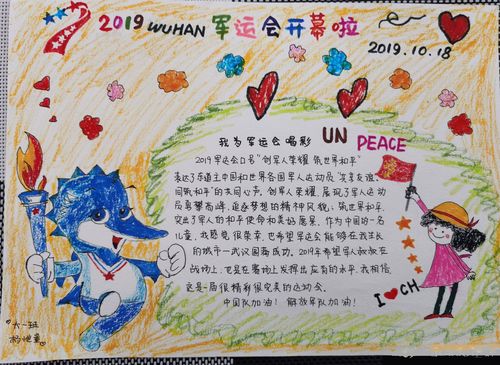 2019 WUHAN 军运会开幕啦
2019.10.18
我为军运会喝彩
UN PEACE
2019军运会口号“创军人荣耀 筑世界和平”
表达了东道主中国和世界各国军人运动员“共享友谊、
同筑和平”的共同心声。创军人荣耀，展现了军人运动
员勇攀高峰、追逐梦想的精神风貌；筑世界和平，
突出了军人的和平使命和美好愿景。作为中国的一名
儿童，我感觉很荣幸，也希望军运会能够在我生长
的城市—武汉圆满成功。2019年希望军人叔叔在
战场上，也是在赛场上发挥出应有的水平，我相信
这是一届很精彩很完美的运动会。
中国队加油！解放军队加油！
I CH
大一班